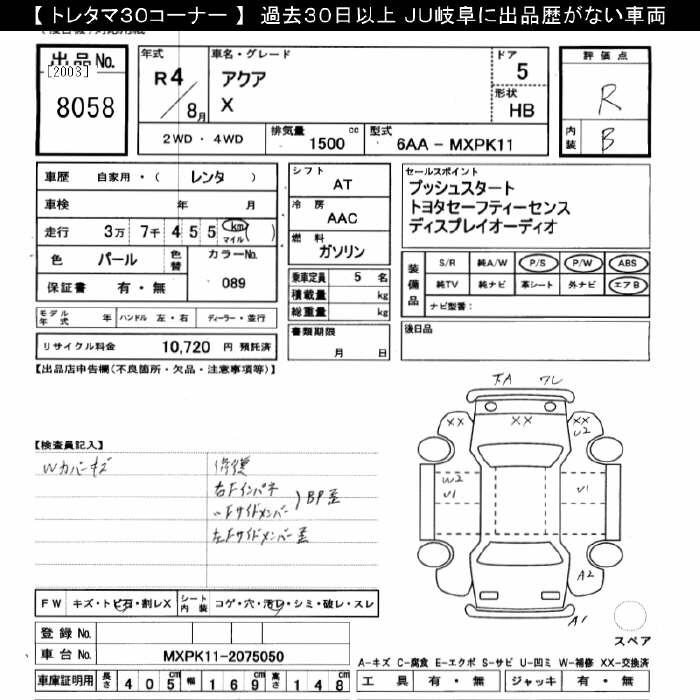 【 トレタマ30コーナー 】 過去30日以上 JU岐阜に出品歴がない車両
出品No.
[2003]
8058
年式
R4
8月
車名・グレード
アクア
X
ドア
5
形状
HB
2WD ・ 4WD
排気量
1500 cc
型式
6AA - MXPK11
評価点
R
内装
B
車歴 自家用・( レンタ )
車検 年 月
走行 3万 7千 4 5 5 km マイル ( )
色 パール 色替
カラーNo.
089
保証書 有・無
シフト
AT
冷房
AAC
燃料
ガソリン
乗車定員 5 名
積載量 kg
総重量 kg
書類期限
月 日
セールスポイント
プッシュスタート
トヨタセーフティーセンス
ディスプレイオーディオ
装備品
S/R 純A/W P/S P/W ABS
純TV 純ナビ 革シート 外ナビ エアB
ナビ型番:
後日品
モデル年式 年 ハンドル 左・右 ディーラー・並行
リサイクル料金 10,720 円 預託済
【出品店申告欄(不良箇所・欠品・注意事項等)】
【検査員記入】
Wカバーキズ
修復
右Fインパネ
〃Fサイドメンバー
BP歪
左Fサイドメンバー歪
FW キズ・トビ石・割レX
シート内装 コゲ・穴・汚レ・シミ・破レ・スレ
登録No.
車台No. MXPK11-2075050
車庫証明用 長さ 4 0 5 cm 幅 1 6 9 cm 高さ 1 4 8 cm
下A ワレ
XX XX
U2
W2
U1
U1
A2
A1
スペア
A-キズ C-腐食 E-エクボ S-サビ U-凹ミ W-補修 XX-交換済
工具 有・無 ジャッキ 有・無